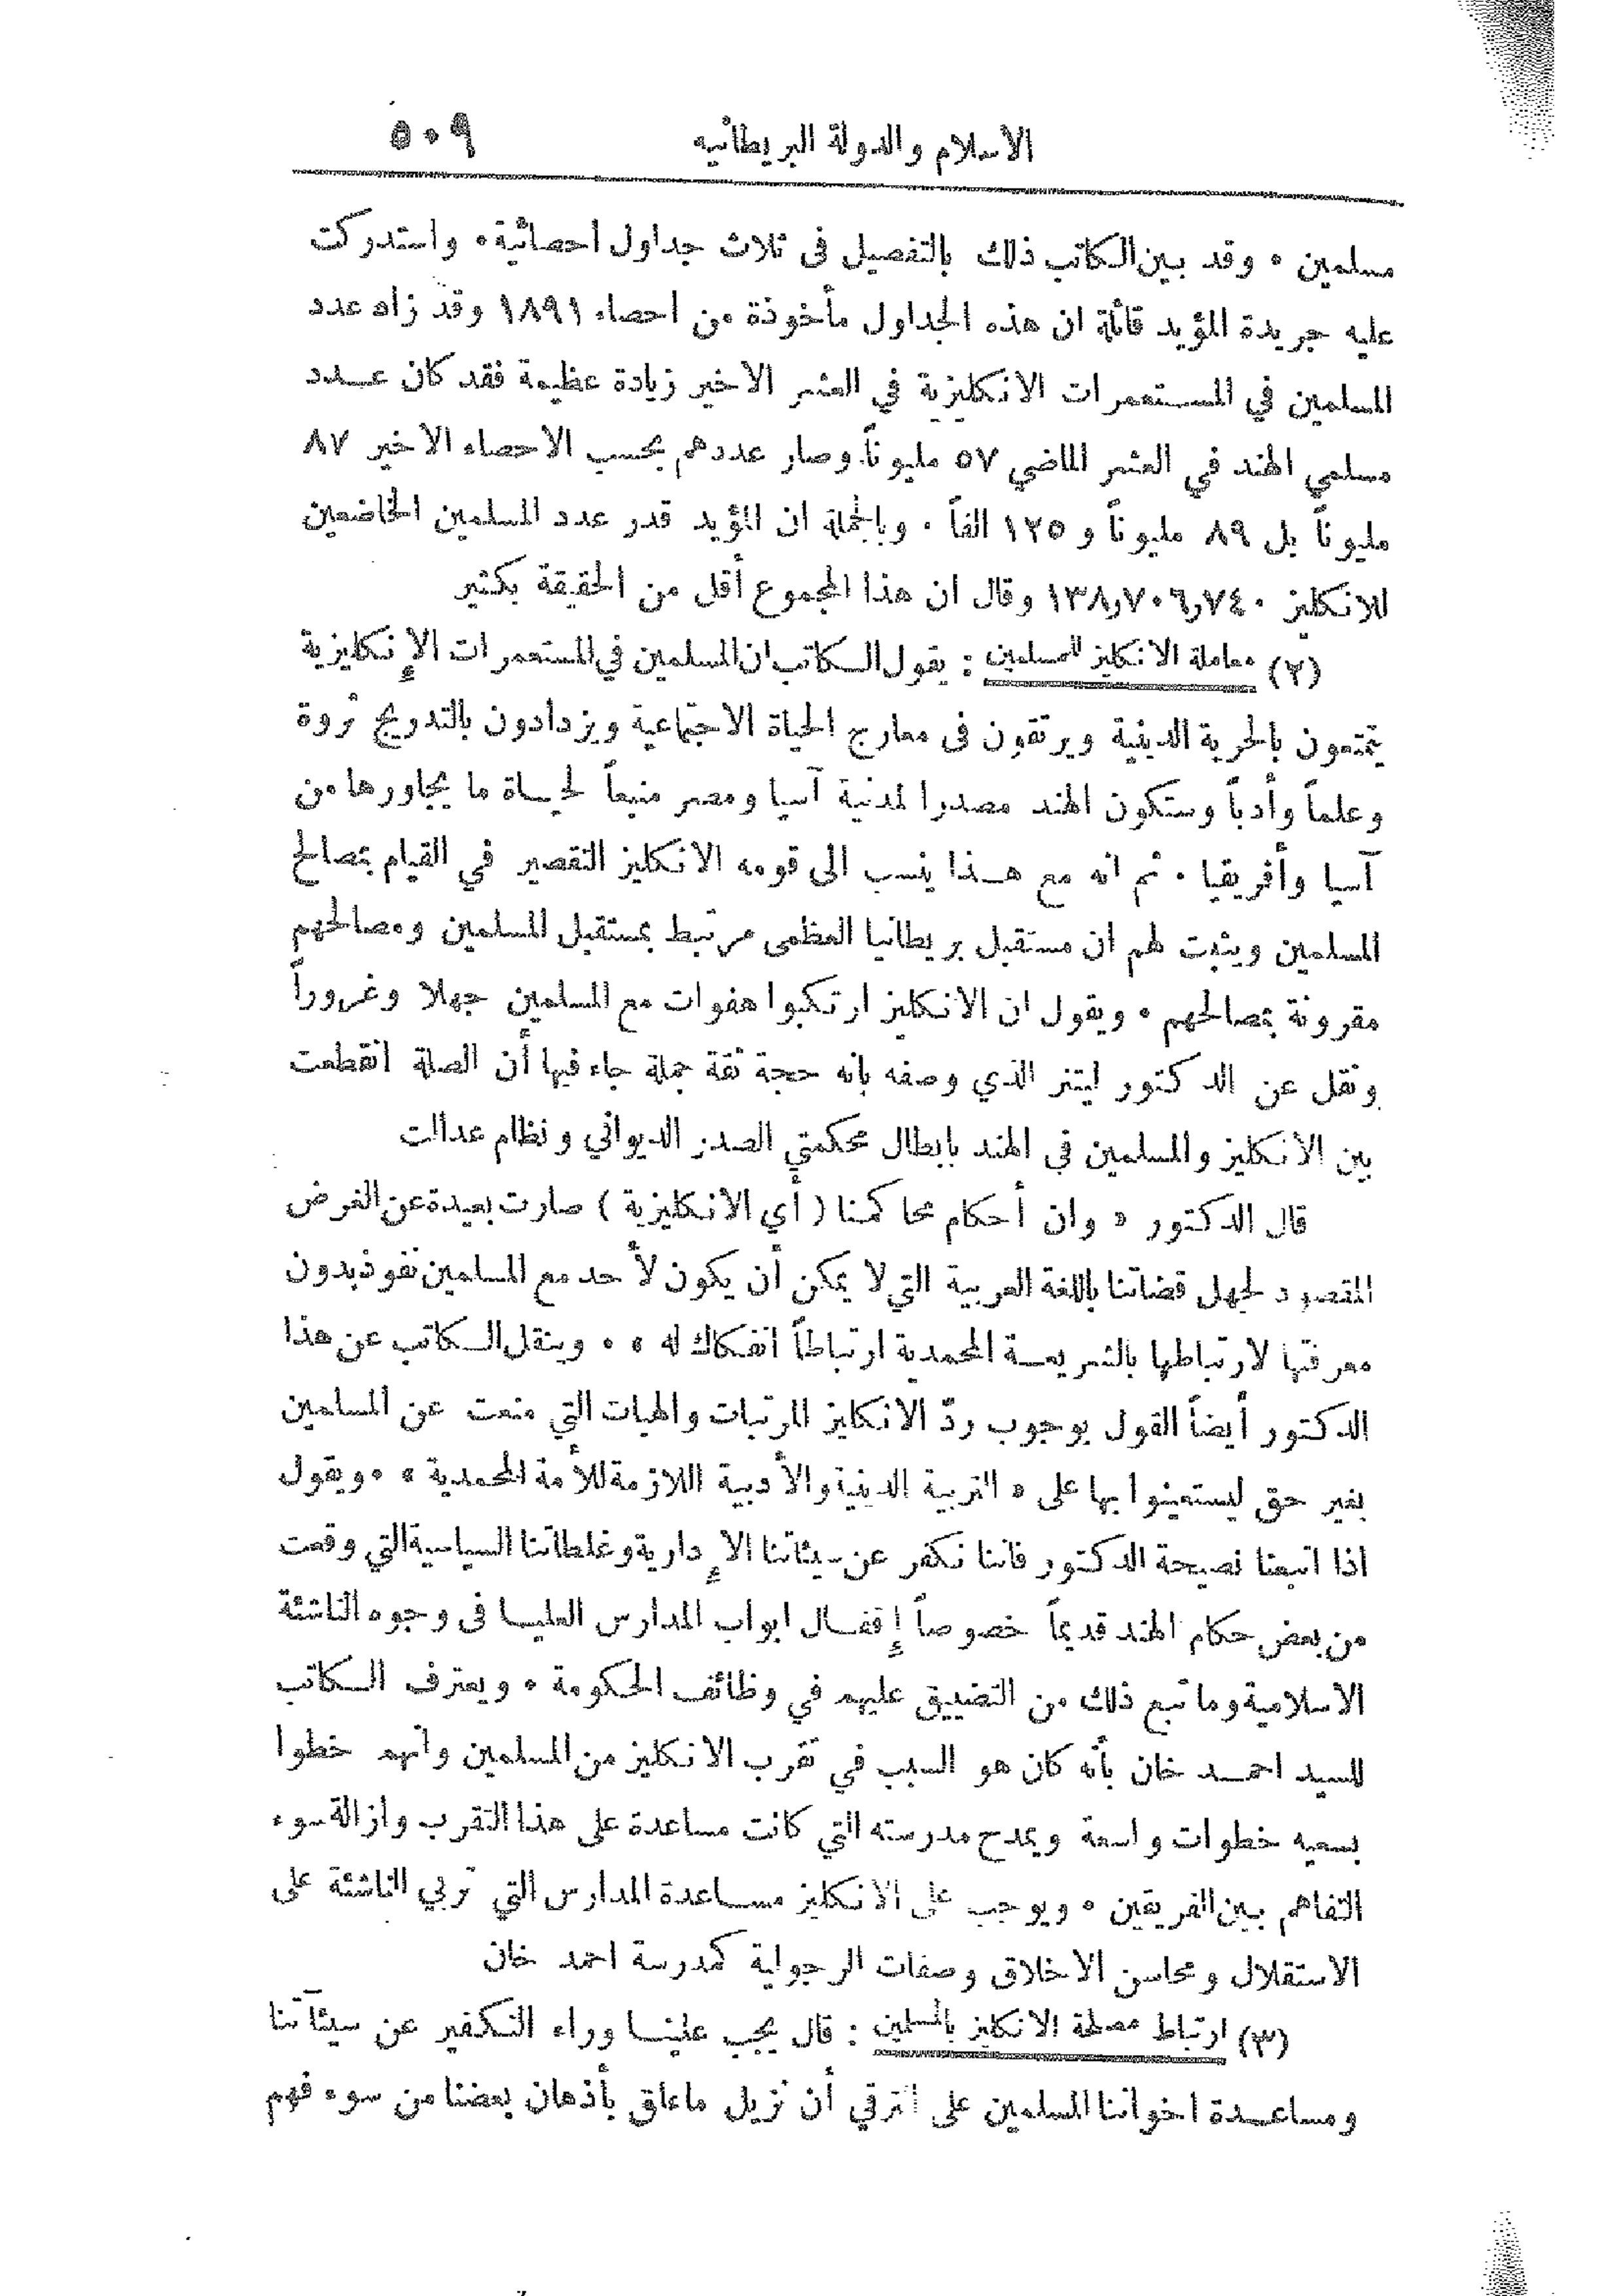 الاسلام والدولة البريطانيه ٥٠٩
مسلمين ٠ وقد بين الكاتب ذلك بالتفصيل فى ثلاث جداول احصائية ٠ واستدركت
عليه جريدة المؤيد قائلة ان هذه الجداول مأخوذة من احصاء ١٨٩١ وقد زاد عدد
المسلمين في المستعمرات الانكليزية في العشر الاخير زيادة عظيمة فقد كان عدد
مسلمي الهند في العشر الماضي ٥٧ مليوناً وصار عددهم بحسب الاحصاء الاخير ٨٧
مليوناً بل ٨٩ مليوناً و ١٢٥ الفاً ٠ وبالجملة ان المؤيد قدر عدد المسلمين الخاضعين
للانكليز ١٣٨,٧٠٦,٧٤٠ وقال ان هذا المجموع أقل من الحقيقة بكثير
(٢) معاملة الانكليز للمسلمين : يقول الكاتب ان المسلمين في المستعمرات الإنكليزية
يتمتعون بالحرية الدينية ويرتقون فى معارج الحياة الاجتماعية ويزدادون بالتدريج ثروة
وعلماً وأدباً وستكون الهند مصدرا لمدنية آسيا ومصر منبعاً لحياة ما يجاورها من
آسيا وأفريقيا ٠ ثم انه مع هذا ينسب الى قومه الانكليز التقصير في القيام بمصالح
المسلمين ويثبت لهم ان مستقبل بريطانيا العظمى مرتبط بمستقبل المسلمين ومصالحهم
مقرونة بمصالحهم ٠ ويقول ان الانكليز ارتكبوا هفوات مع المسلمين جهلا وغروراً
ونقل عن الدكتور ليتنر الذي وصفه بانه حجة ثقة جملة جاء فيها أن الصلة انقطعت
بين الانكليز والمسلمين في الهند بابطال محكمتي الصدر الديواني ونظام عدالت
قال الدكتور « وان أحكام محاكمنا ( أي الانكليزية ) صارت بعيدة عن الغرض
المقصود لجهل قضاتنا باللغة العربية التي لا يمكن أن يكون لأحد مع المسلمين نفوذ بدون
معرفتها لارتباطها بالشريعة المحمدية ارتباطاً انفكاك له » ٠ وينقل الكاتب عن هذا
الدكتور أيضاً القول بوجوب ردّ الانكليز المرتبات والهبات التي منعت عن المسلمين
بغير حق ليستعينوا بها على « التربية الدينية والأدبية اللازمة للأمة المحمدية » ٠ ويقول
اذا اتبعنا نصيحة الدكتور فاننا نكفر عن سيئاتنا الإدارية وغلطاتنا السياسية التي وقعت
من بعض حكام الهند قديماً خصوصاً إقفال ابواب المدارس العليا فى وجوه الناشئة
الاسلامية وما تبع ذلك من التضييق عليهم في وظائف الحكومة ٠ ويعترف الكاتب
للسيد احمد خان بأنه كان هو السبب في تقرب الانكليز من المسلمين وانهم خطوا
بسعيه خطوات واسعة ويمدح مدرسته التي كانت مساعدة على هذا التقرب وازالة سوء
التفاهم بين الفريقين ٠ ويوجب على الانكليز مساعدة المدارس التي تربي الناشئة على
الاستقلال ومحاسن الاخلاق وصفات الرجولية كمدرسة احمد خان
(٣) ارتباط مصلحة الانكليز بالمسلمين : قال يجب علينا وراء التكفير عن سيئآتنا
ومساعدة اخواننا المسلمين على الترقي أن نزيل ماعلق بأذهان بعضنا من سوء فهم